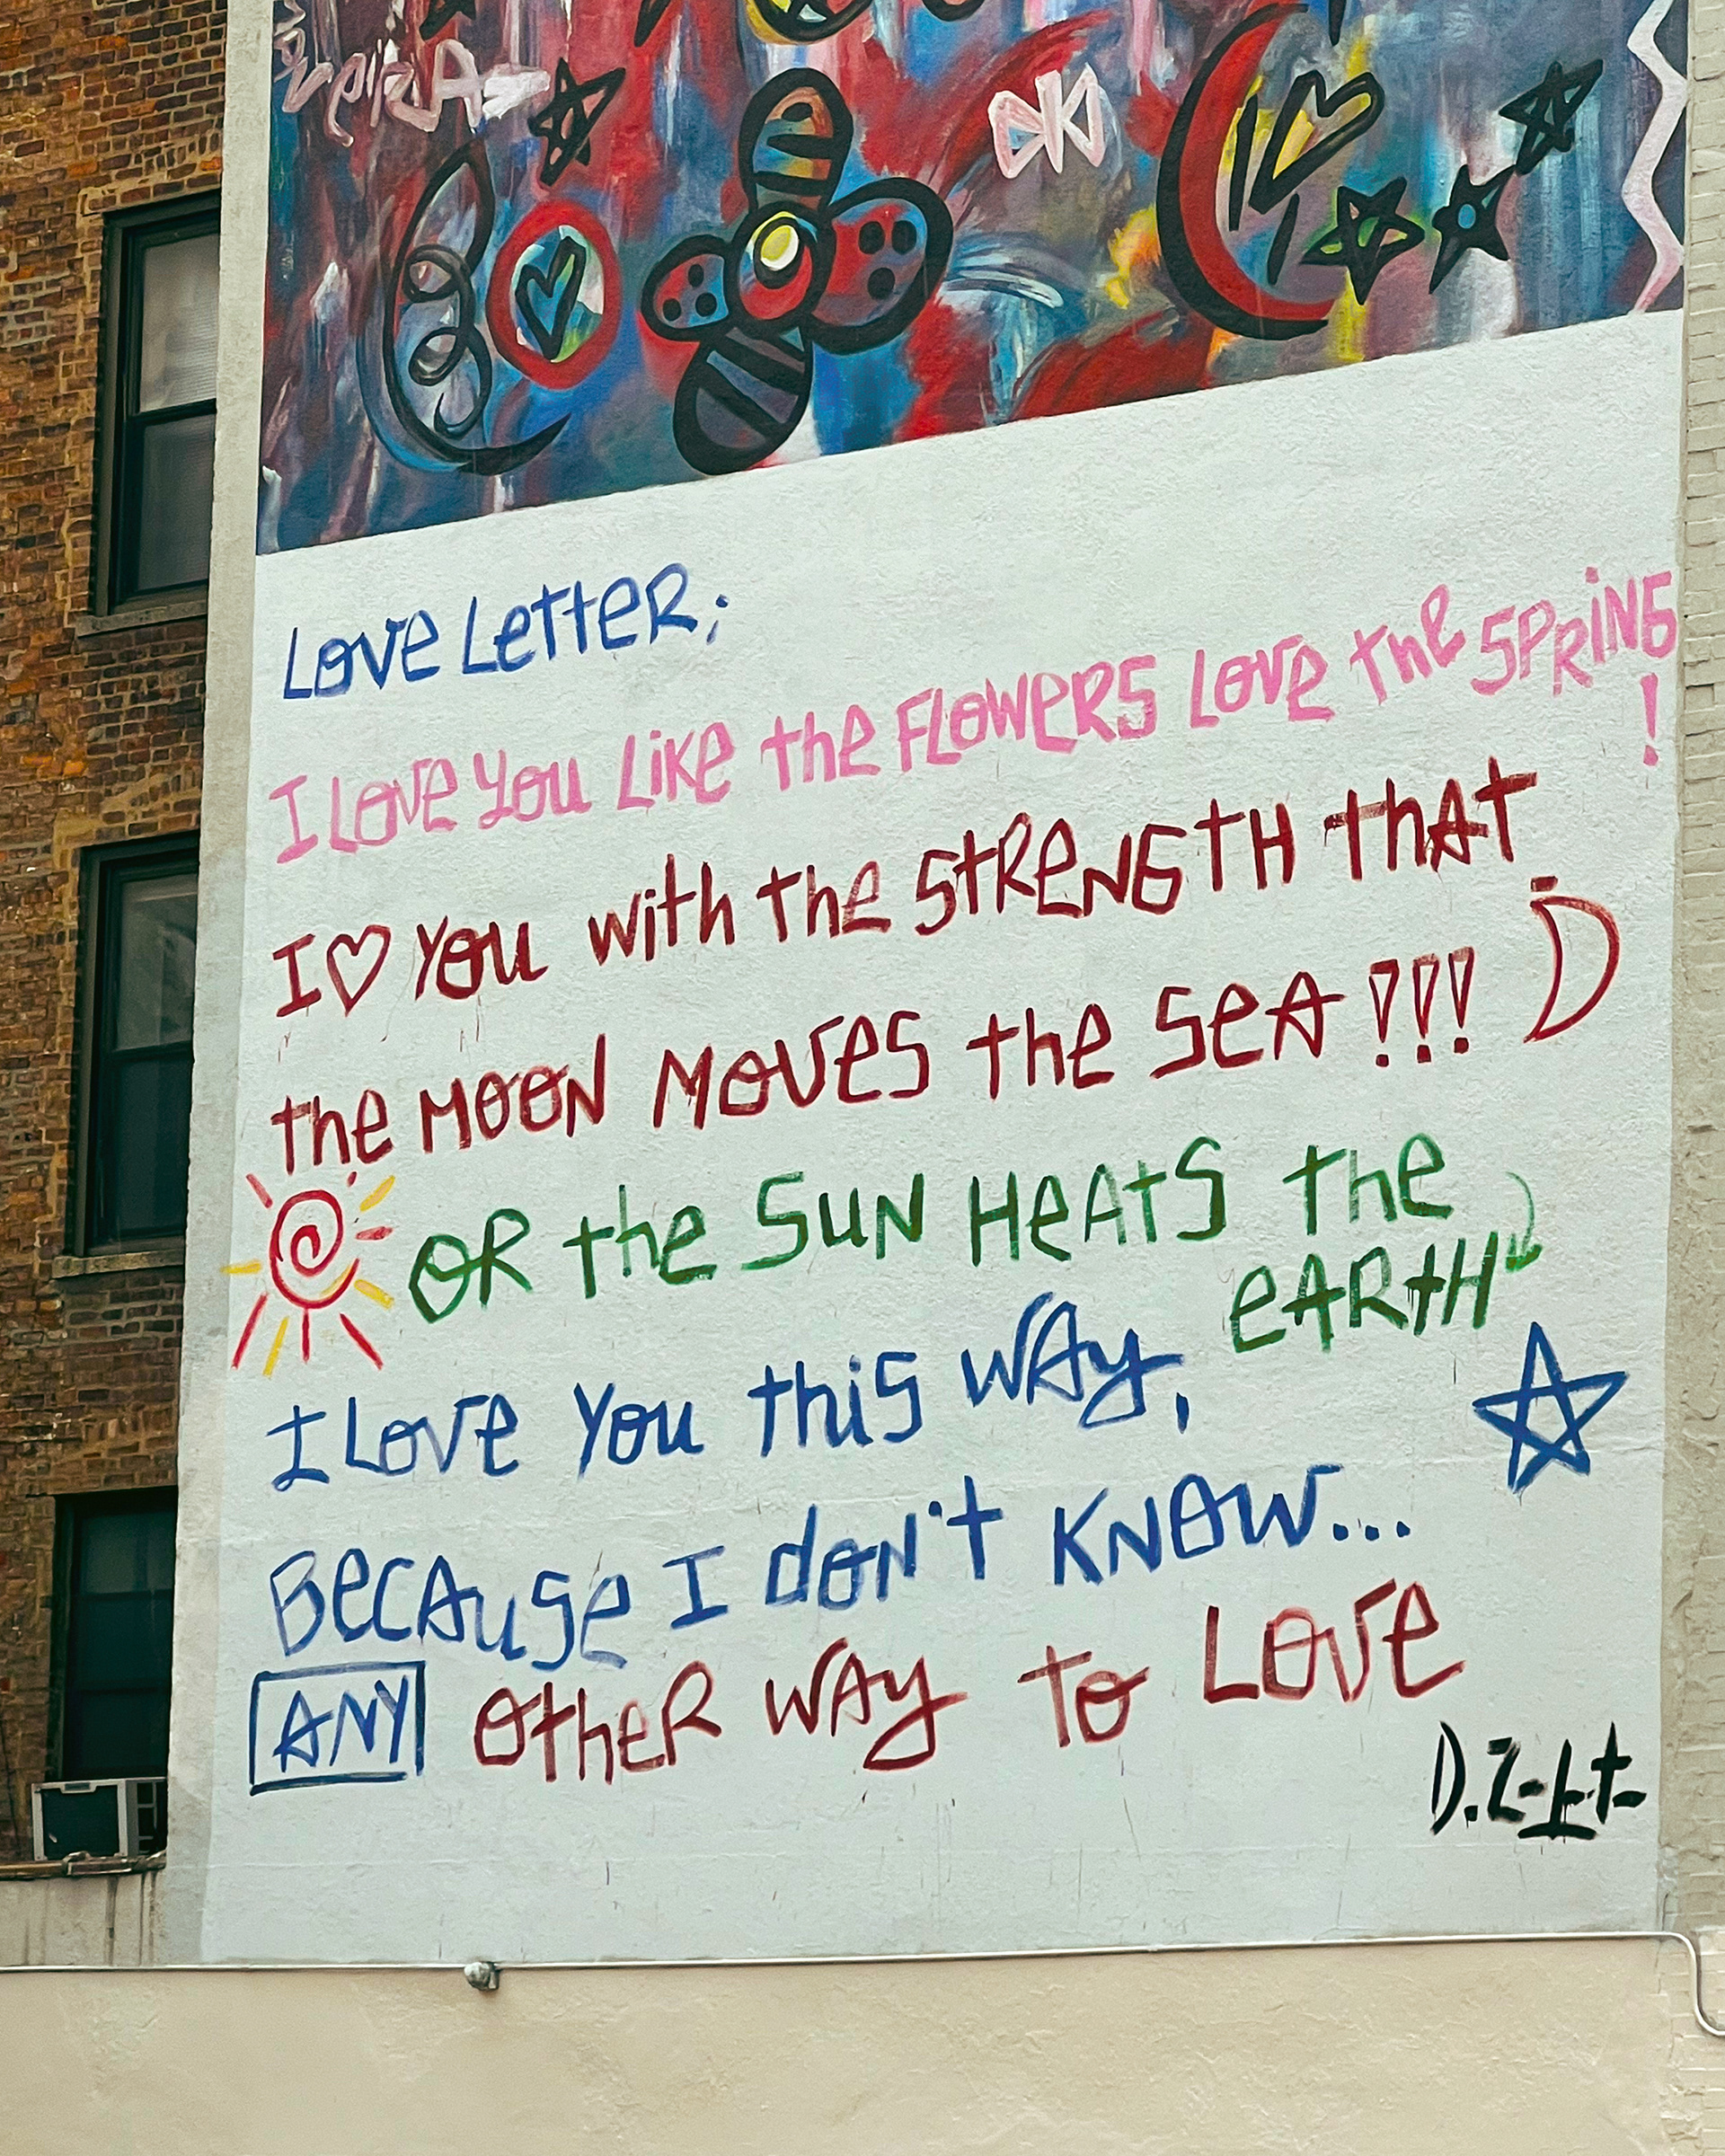 Love Letter;
I Love you Like the FLOWERS Love the SPRiNG
!
I ♡ You with the StReNGTH that
the MOON MOVeS the SeA !!!
OR the SuN HeAtS the
eARtH
I Love You this WAy,
BecAuse I don't KNOW...
ANY OtheR WAy to LOVe